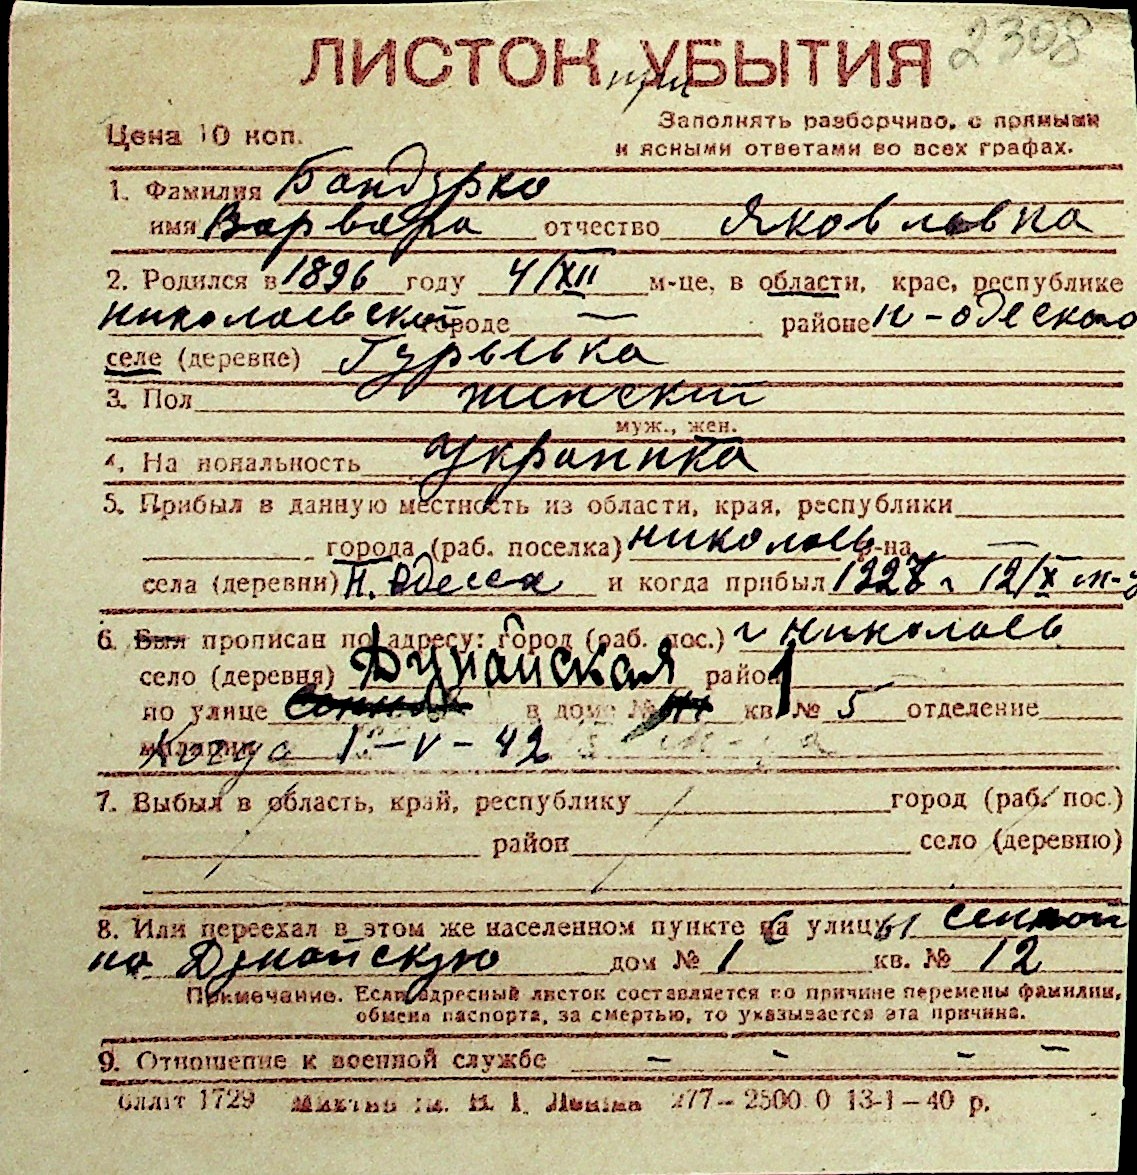 2308
ЛИСТОК при УБЫТИЯ
Цена 10 коп.
Заполнять разборчиво, с прямыми
и ясными ответами во всех графах.
1. Фамилия Бандурко
имя Варвара отчество Яковлевна
2. Родился в 1896 году 4/XII м-це, в области, крае, республике
николаевской городе — районе н-одеского
селе (деревне) Гурьевка
3. Пол женский
муж., жен.
4. На иональность украинка
5. Прибыл в данную местность из области, края, республики
города (раб. поселка) николаев р-на —
села (деревни) Н. Одесса и когда прибыл 1928 г 12/X м-ца
6. Был прописан по адресу: город (раб. пос.) г николаев
село (деревня) Дунайская район 1
по улице Сенная в доме № кв. № 5 отделение
Когда 1-V-42
7. Выбыл в область, край, республику город (раб. пос.)
район село (деревню)
8. Или переехал в этом же населенном пункте на улицу с сенной
на Дунайскую дом № 1 кв. № 12
Примечание. Если адресный листок составляется по причине перемены фамилии,
обмена паспорта, за смертью, то указывается эта причина.
9. Отношение к военной службе — - - —
блліт 1729 277—2500.0 13-1—40 р.